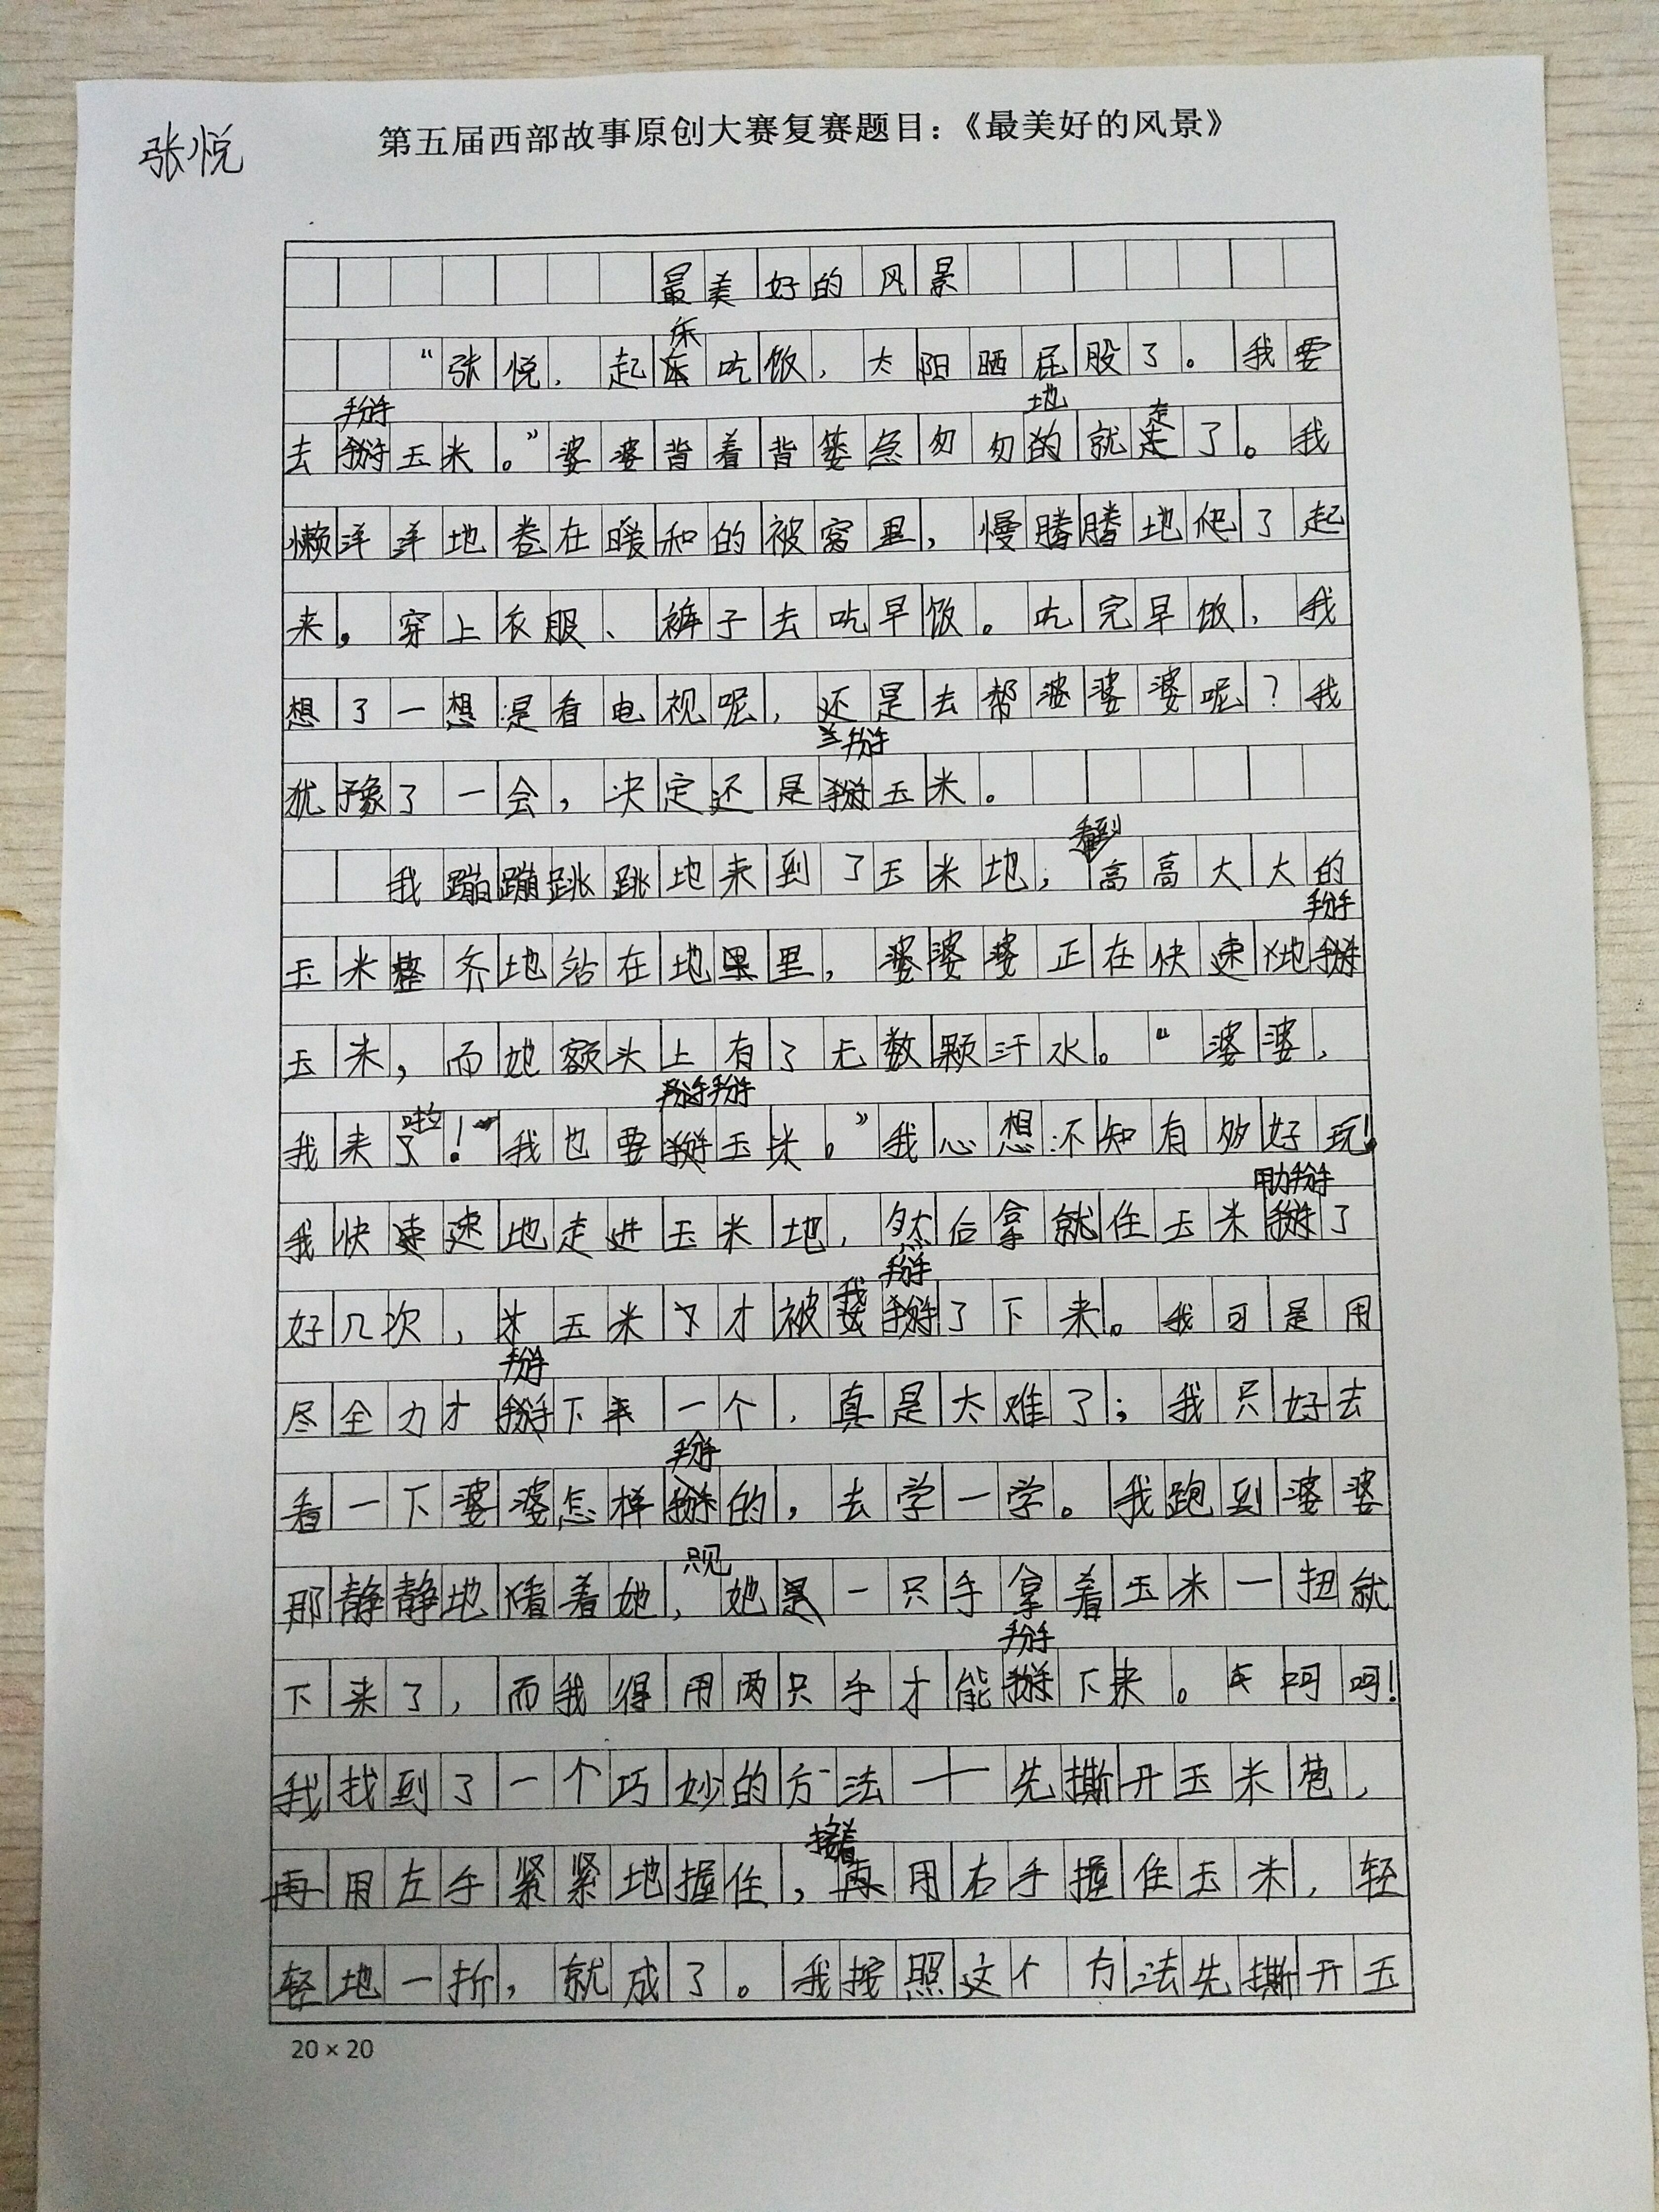 张悦
第五届西部故事原创大赛复赛题目:《最美好的风景》
最美好的风景
“张悦,起床吃饭,太阳晒屁股了。我要
去掰玉米。”婆婆背着背篓急匆匆地就走了。我
懒洋洋地卷在暖和的被窝里,慢腾腾地爬了起
来。穿上衣服、裤子去吃早饭。吃完早饭,我
想了一想是看电视呢,还是去帮婆婆婆呢?我
犹豫了一会,决定还是掰玉米。
我蹦蹦跳跳地来到了玉米地,看到高高大大的
玉米整齐地站在地里,婆婆婆正在快速地掰
玉米,而她额头上有了无数颗汗水。“婆婆,
我来啦!我也要掰玉米。”我心想:不知有多好玩!
我快速速地走进玉米地,然后拿就住玉米用力掰了
好几次,玉米才被我掰了下来。我可是用
尽全力才掰下来一个,真是太难了;我只好去
看一下婆婆怎样掰的,去学一学。我跑到婆婆
那静静地看着她,只见她一只手拿着玉米一扭就
下来了,而我得用两只手才能掰下来。呵呵!
我找到了一个巧妙的方法——先撕开玉米苞,
再用左手紧紧地握住,接着用右手握住玉米,轻
轻地一折,就成了。我按照这个方法先撕开玉
20×20